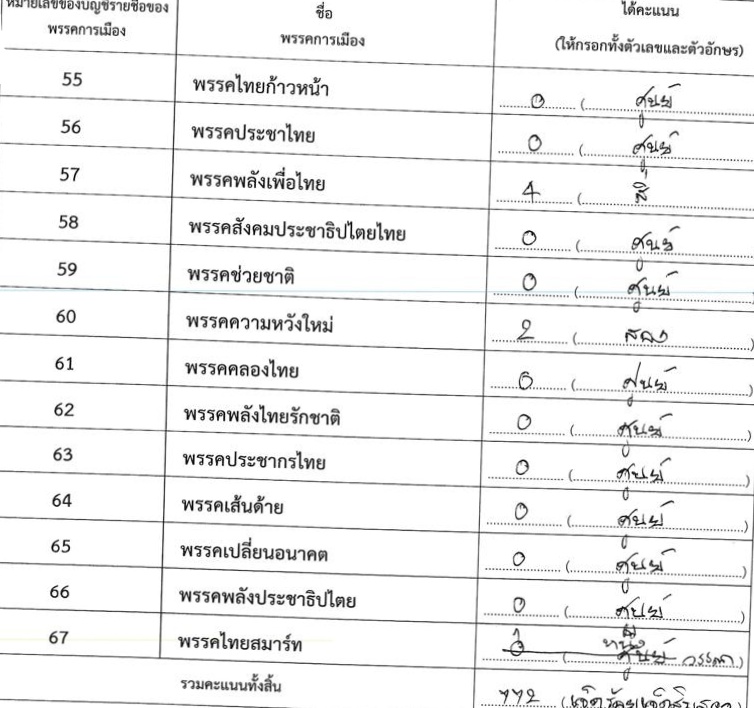 หมายเลขของบัญชีรายชื่อของ ชื่อ ได้คะแนน
พรรคการเมือง พรรคการเมือง (ให้กรอกทั้งตัวเลขและตัวอักษร)
55 พรรคไทยก้าวหน้า 0 ( ศูนย์
56 พรรคประชาไทย 0 ( ศูนย์
57 พรรคพลังเพื่อไทย 4 ( สี่
58 พรรคสังคมประชาธิปไตยไทย 0 ( ศูนย์
59 พรรคช่วยชาติ 0 ( ศูนย์
60 พรรคความหวังใหม่ 2 ( สอง )
61 พรรคคลองไทย 0 ( ศูนย์ )
62 พรรคพลังไทยรักชาติ 0 ( ศูนย์ )
63 พรรคประชากรไทย 0 ( ศูนย์ )
64 พรรคเส้นด้าย 0 ( ศูนย์ )
65 พรรคเปลี่ยนอนาคต 0 ( ศูนย์ )
66 พรรคพลังประชาธิปไตย 0 ( ศูนย์ )
67 พรรคไทยสมาร์ท 1 0 ( หนึ่ง ศูนย์ )
รวมคะแนนทั้งสิ้น 772 (เจ็ดร้อยเจ็ดสิบสอง)